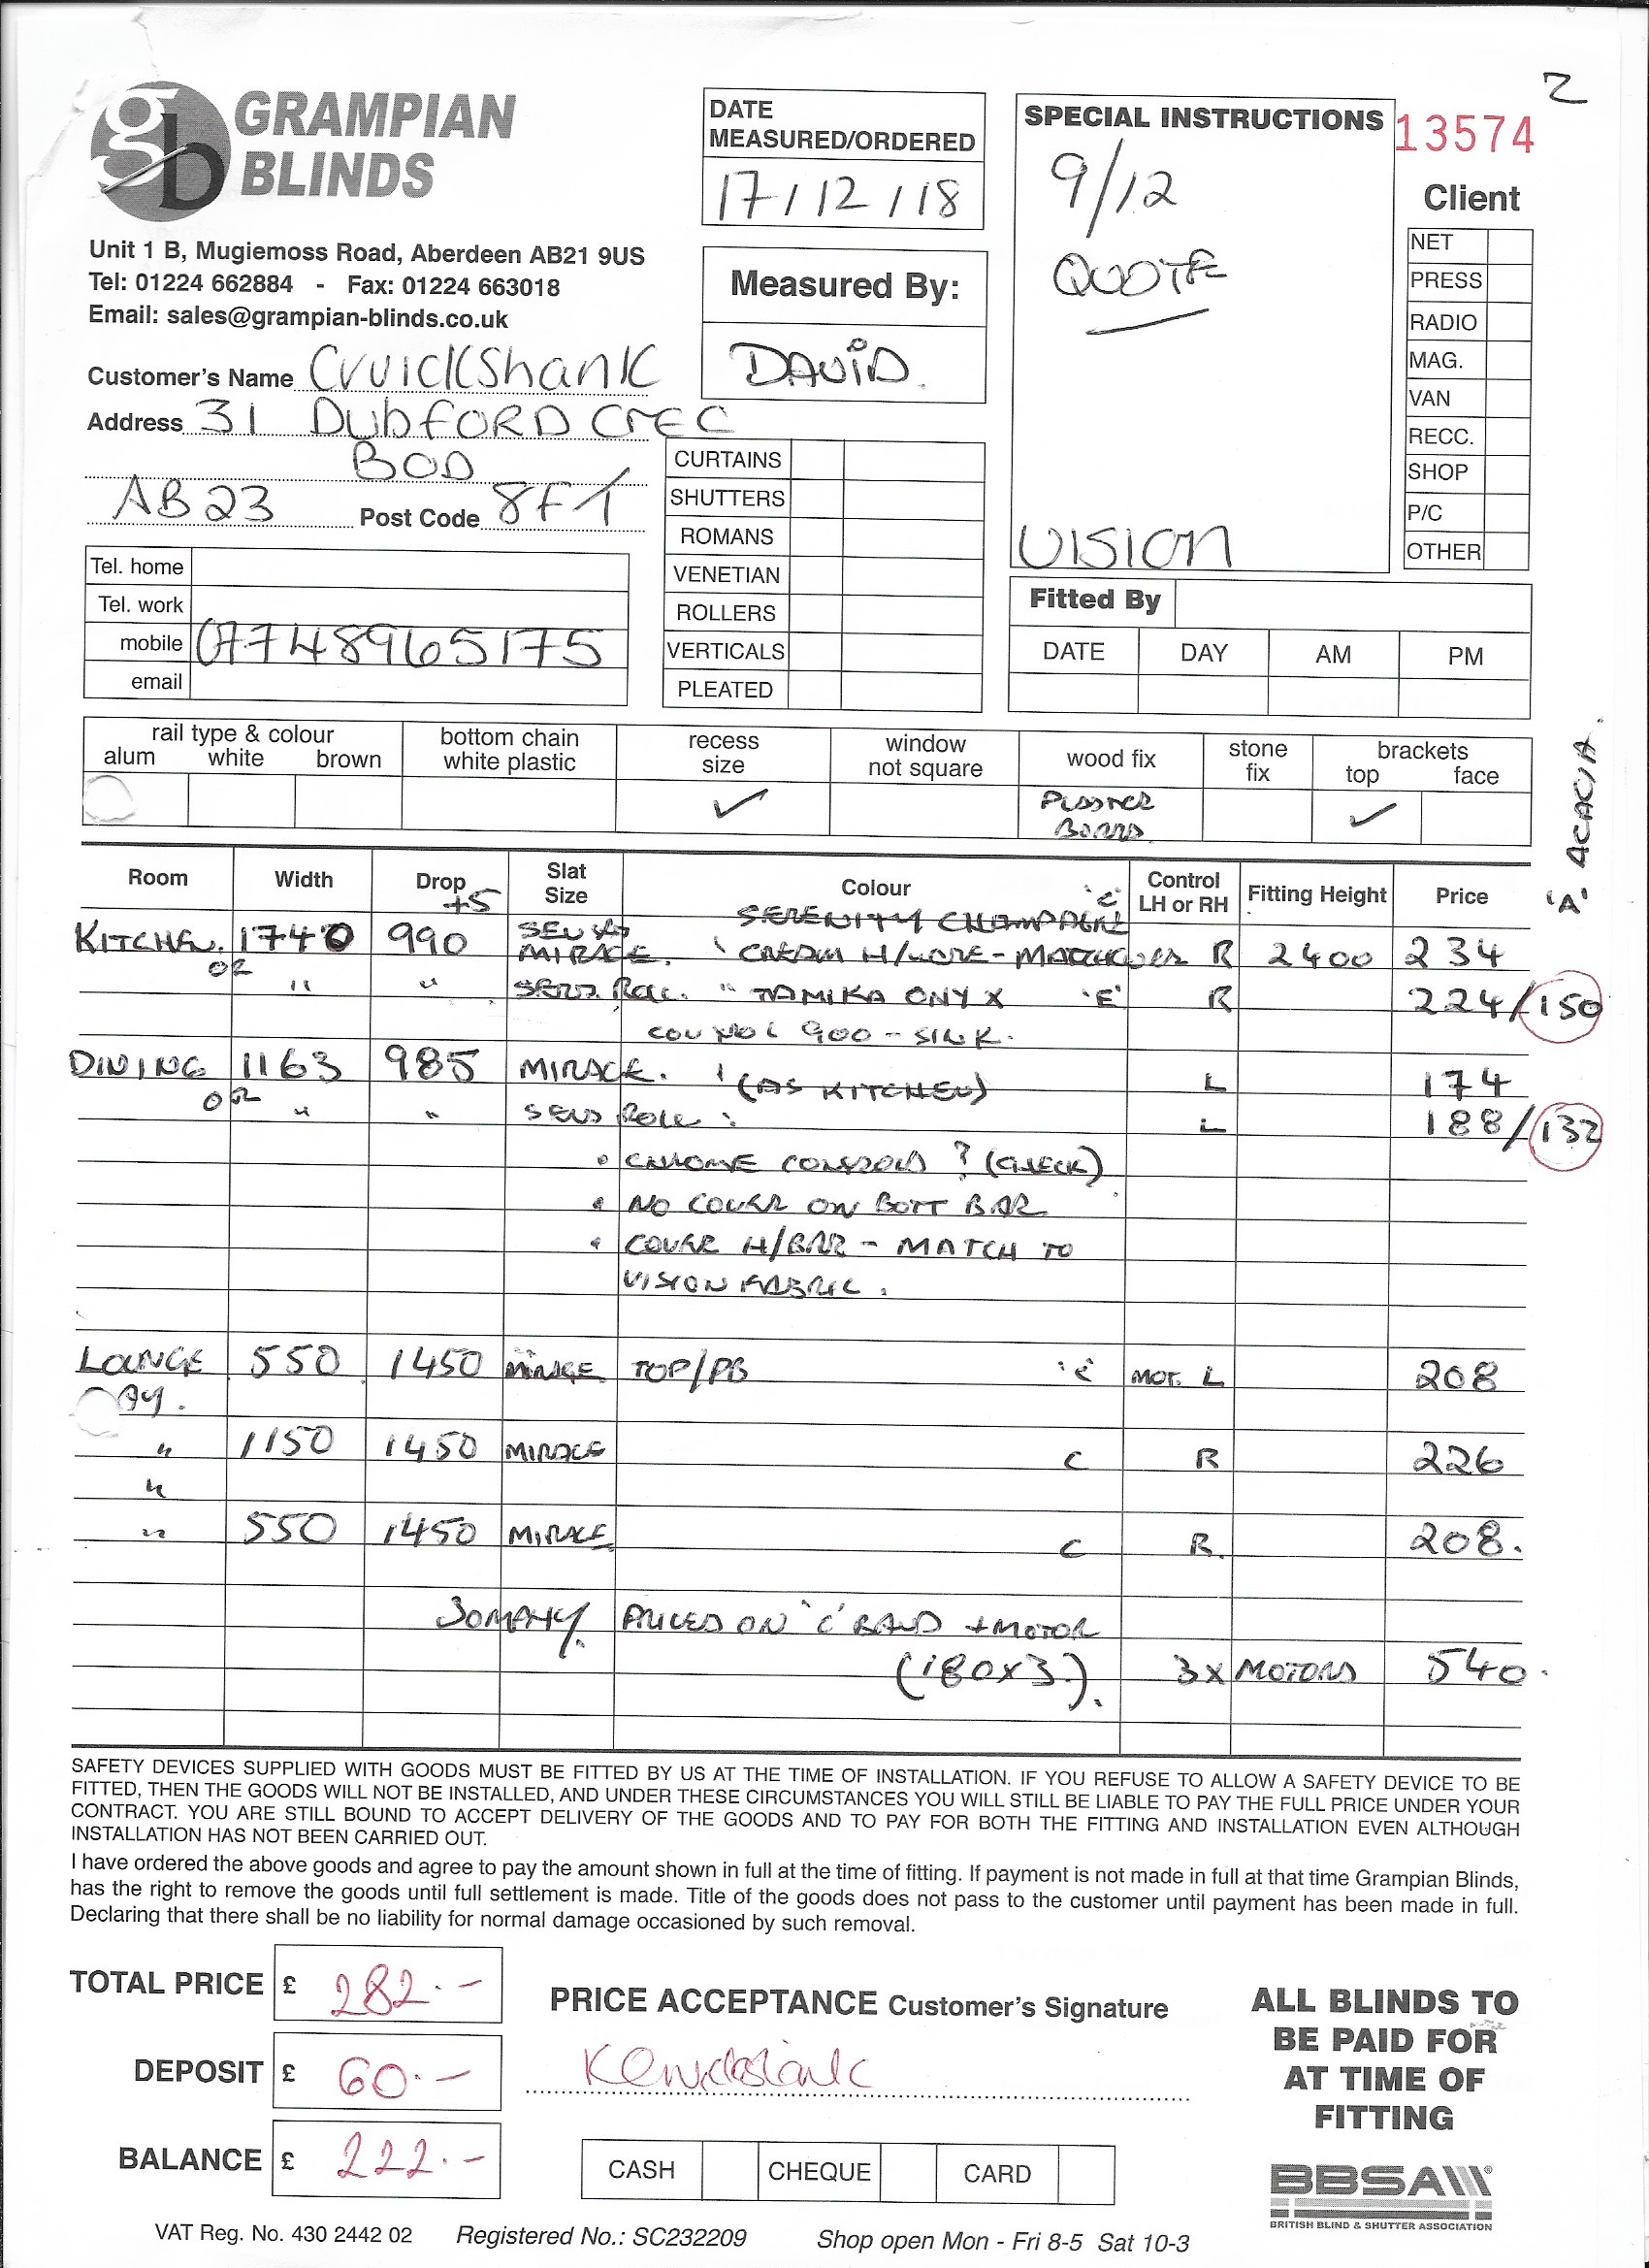 2
GRAMPIAN
BLINDS
Unit 1 B, Mugiemoss Road, Aberdeen AB21 9US
Tel: 01224 662884 - Fax: 01224 663018
Email: sales@grampian-blinds.co.uk
Customer's Name Cruickshank
Address 31 DUBFORD CREC
BOD
AB23 Post Code 8FT
Tel. home
Tel. work
mobile 07748965175
email
DATE
MEASURED/ORDERED
17/12/18
Measured By:
DAVID.
CURTAINS
SHUTTERS
ROMANS
VENETIAN
ROLLERS
VERTICALS
PLEATED
SPECIAL INSTRUCTIONS
9/12
QUOTE
VISION
13574
Client
NET
PRESS
RADIO
MAG.
VAN
RECC.
SHOP
P/C
OTHER
Fitted By
DATE DAY AM PM
rail type & colour
alum white brown
bottom chain
white plastic
recess
size ✓
window
not square
wood fix
stone
fix
brackets
top face
BOARD ✓
'A' ACACIA.
Room Width Drop +5 Slat Size Colour 'C' Control LH or RH Fitting Height Price
SERENITY CHAMPAGNE
KITCHEN. 1740 990 MIRAGE. CREAM R 2400 234
OR " " " TAMIKA ONYX 'E' R 224/150
900 - SINK.
DINING 1163 985 MIRAGE. (AS KITCHEN) L 174
OR " " L 188/132
• CHROME ? (CHECK)
• NO COVER ON BOTT BAR
• COVER H/BAR - MATCH TO
VISION FABRIC.
LOUNGE 550 1450 MIRAGE TOP/PB 'C' MOT. L 208
" 1150 1450 MIRAGE C R 226
"
" 550 1450 MIRAGE C R. 208.
PRICED ON 'C' BAND + MOTOR
(180x3). 3x MOTORS 540.
SAFETY DEVICES SUPPLIED WITH GOODS MUST BE FITTED BY US AT THE TIME OF INSTALLATION. IF YOU REFUSE TO ALLOW A SAFETY DEVICE TO BE
FITTED, THEN THE GOODS WILL NOT BE INSTALLED, AND UNDER THESE CIRCUMSTANCES YOU WILL STILL BE LIABLE TO PAY THE FULL PRICE UNDER YOUR
CONTRACT. YOU ARE STILL BOUND TO ACCEPT DELIVERY OF THE GOODS AND TO PAY FOR BOTH THE FITTING AND INSTALLATION EVEN ALTHOUGH
INSTALLATION HAS NOT BEEN CARRIED OUT.
I have ordered the above goods and agree to pay the amount shown in full at the time of fitting. If payment is not made in full at that time Grampian Blinds,
has the right to remove the goods until full settlement is made. Title of the goods does not pass to the customer until payment has been made in full.
Declaring that there shall be no liability for normal damage occasioned by such removal.
TOTAL PRICE £ 282.-
DEPOSIT £ 60.-
BALANCE £ 222.-
PRICE ACCEPTANCE Customer's Signature
CASH CHEQUE CARD
ALL BLINDS TO
BE PAID FOR
AT TIME OF
FITTING
BBSA
BRITISH BLIND & SHUTTER ASSOCIATION
VAT Reg. No. 430 2442 02 Registered No.: SC232209 Shop open Mon - Fri 8-5 Sat 10-3